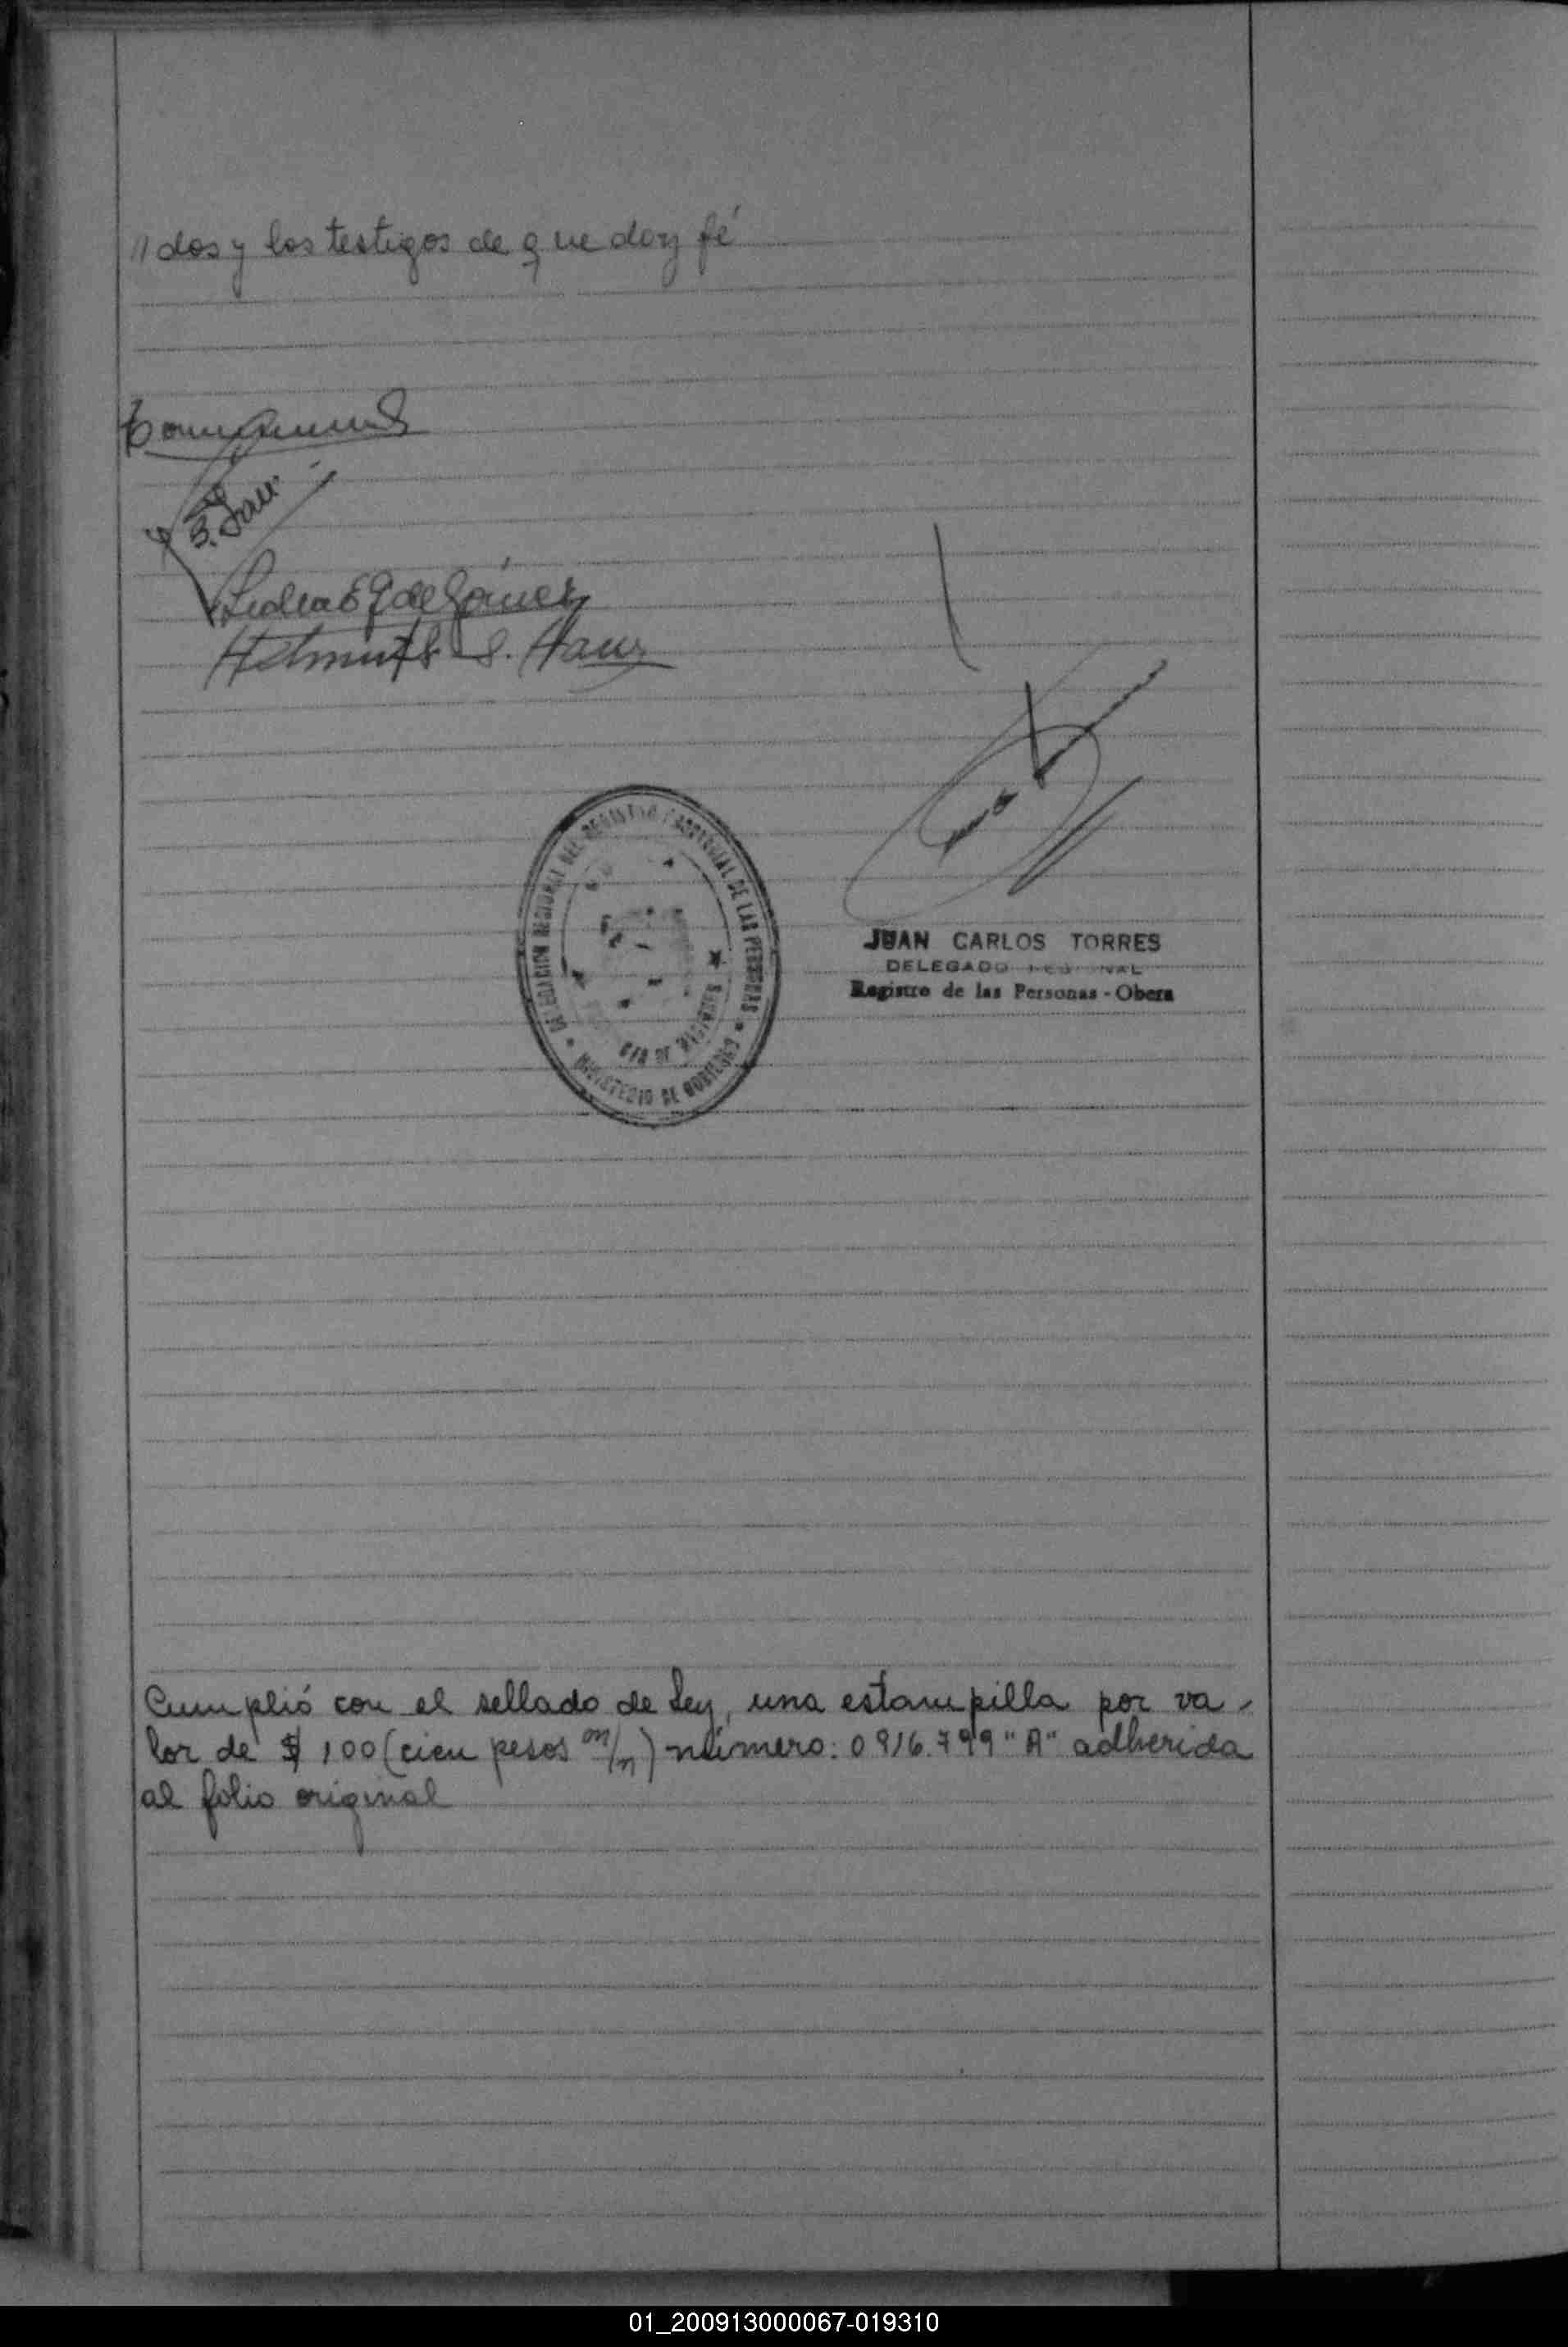 // dos y los testigos de que doy fé
Lidia E G de Gómez
Helmuth S. Hanz
DELEGACION REGIONAL DEL REGISTRO PROVINCIAL DE LAS PERSONAS
MINISTERIO DE GOBIERNO
JUAN CARLOS TORRES
DELEGADO
Registro de las Personas - Obera
Cumplió con el sellado de Ley, una estampilla por va-
lor de $ 100 (cien pesos m/n) número: 0916.799 "A" adherida
al folio original
01_200913000067-019310